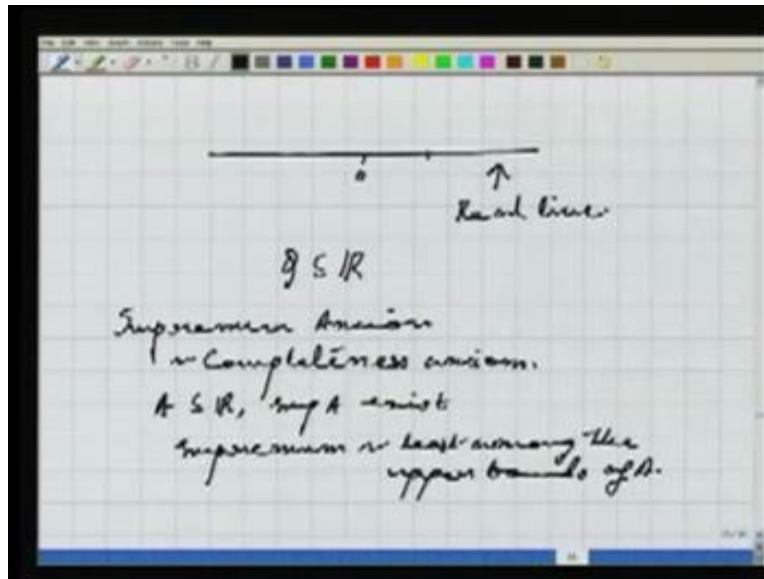 0
Real line.
Q ⊆ ℝ
Supremum Axiom
~ Completeness axiom.
A ⊆ ℝ, sup A exist
supremum ~ least among the
upper bounds of A.